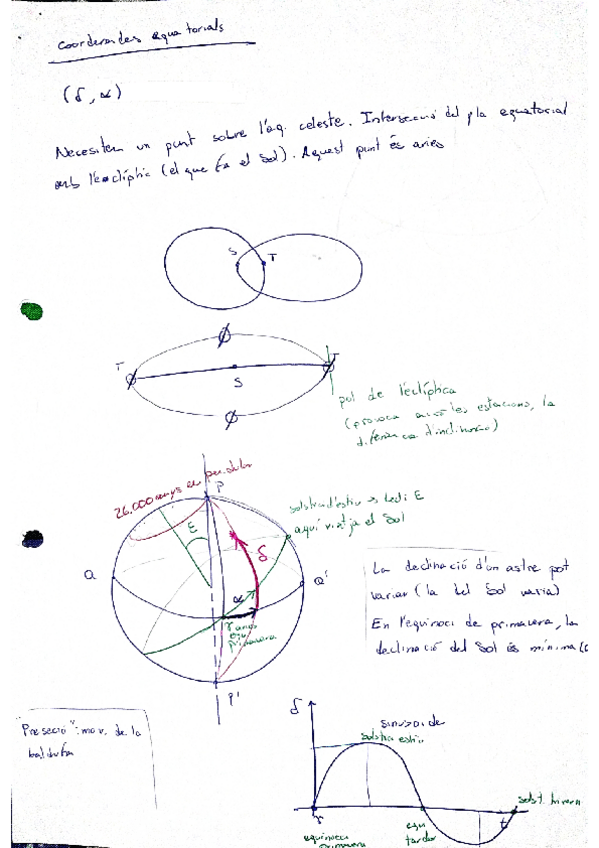 Coordenades equatorials
(δ, α)
Necesitem un punt sobre l'eq. celeste. Intersecció del pla equatorial
amb l'eclíptic (el que fa el Sol). Aquest punt és aries
S T
T S T
pol de l'eclíptica
(provoca les estacions, la
diferència d'inclinació)
26.000 anys en
P
solstici d'estiu → δ
aquí viatja el Sol
ε
δ
Q Q'
α
γ aries
equ
primavera
P'
La declinació d'un astre pot
variar (la del Sol varia)
En l'equinoci de primavera, la
declinació del Sol és mínima
Presesió: mov. de la
baldufa
δ
sinusoide
solstici estiu
solst. hivern
γ
t
equinoci
primavera
equ
tardor